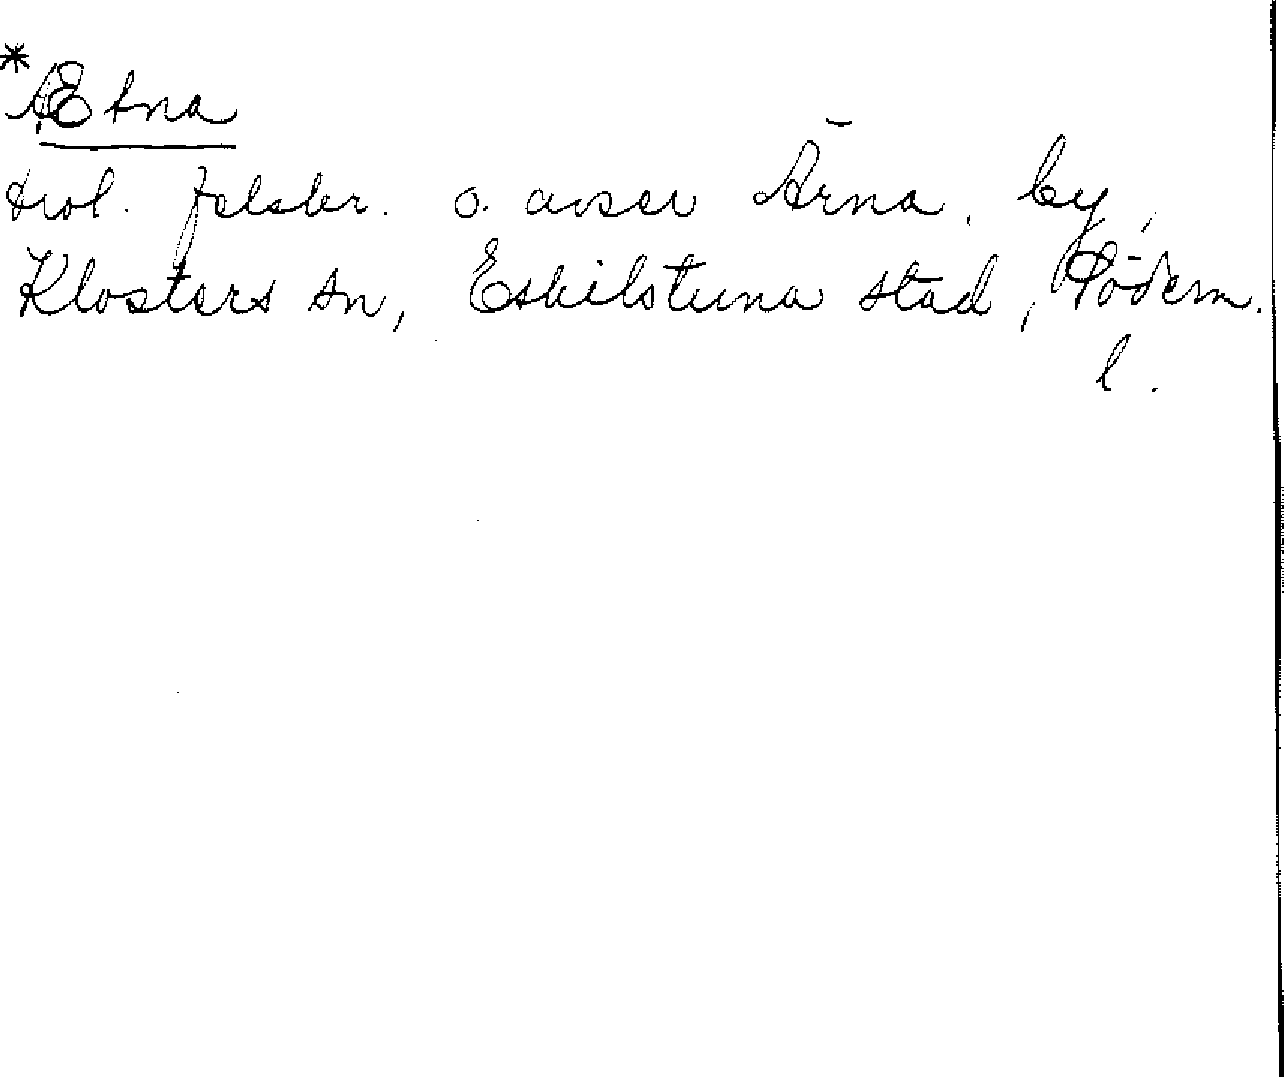 *Ætna
trol. felskr. o. avser Ärna, by,
Klosters sn, Eskilstuna stad, Söderm.
l.